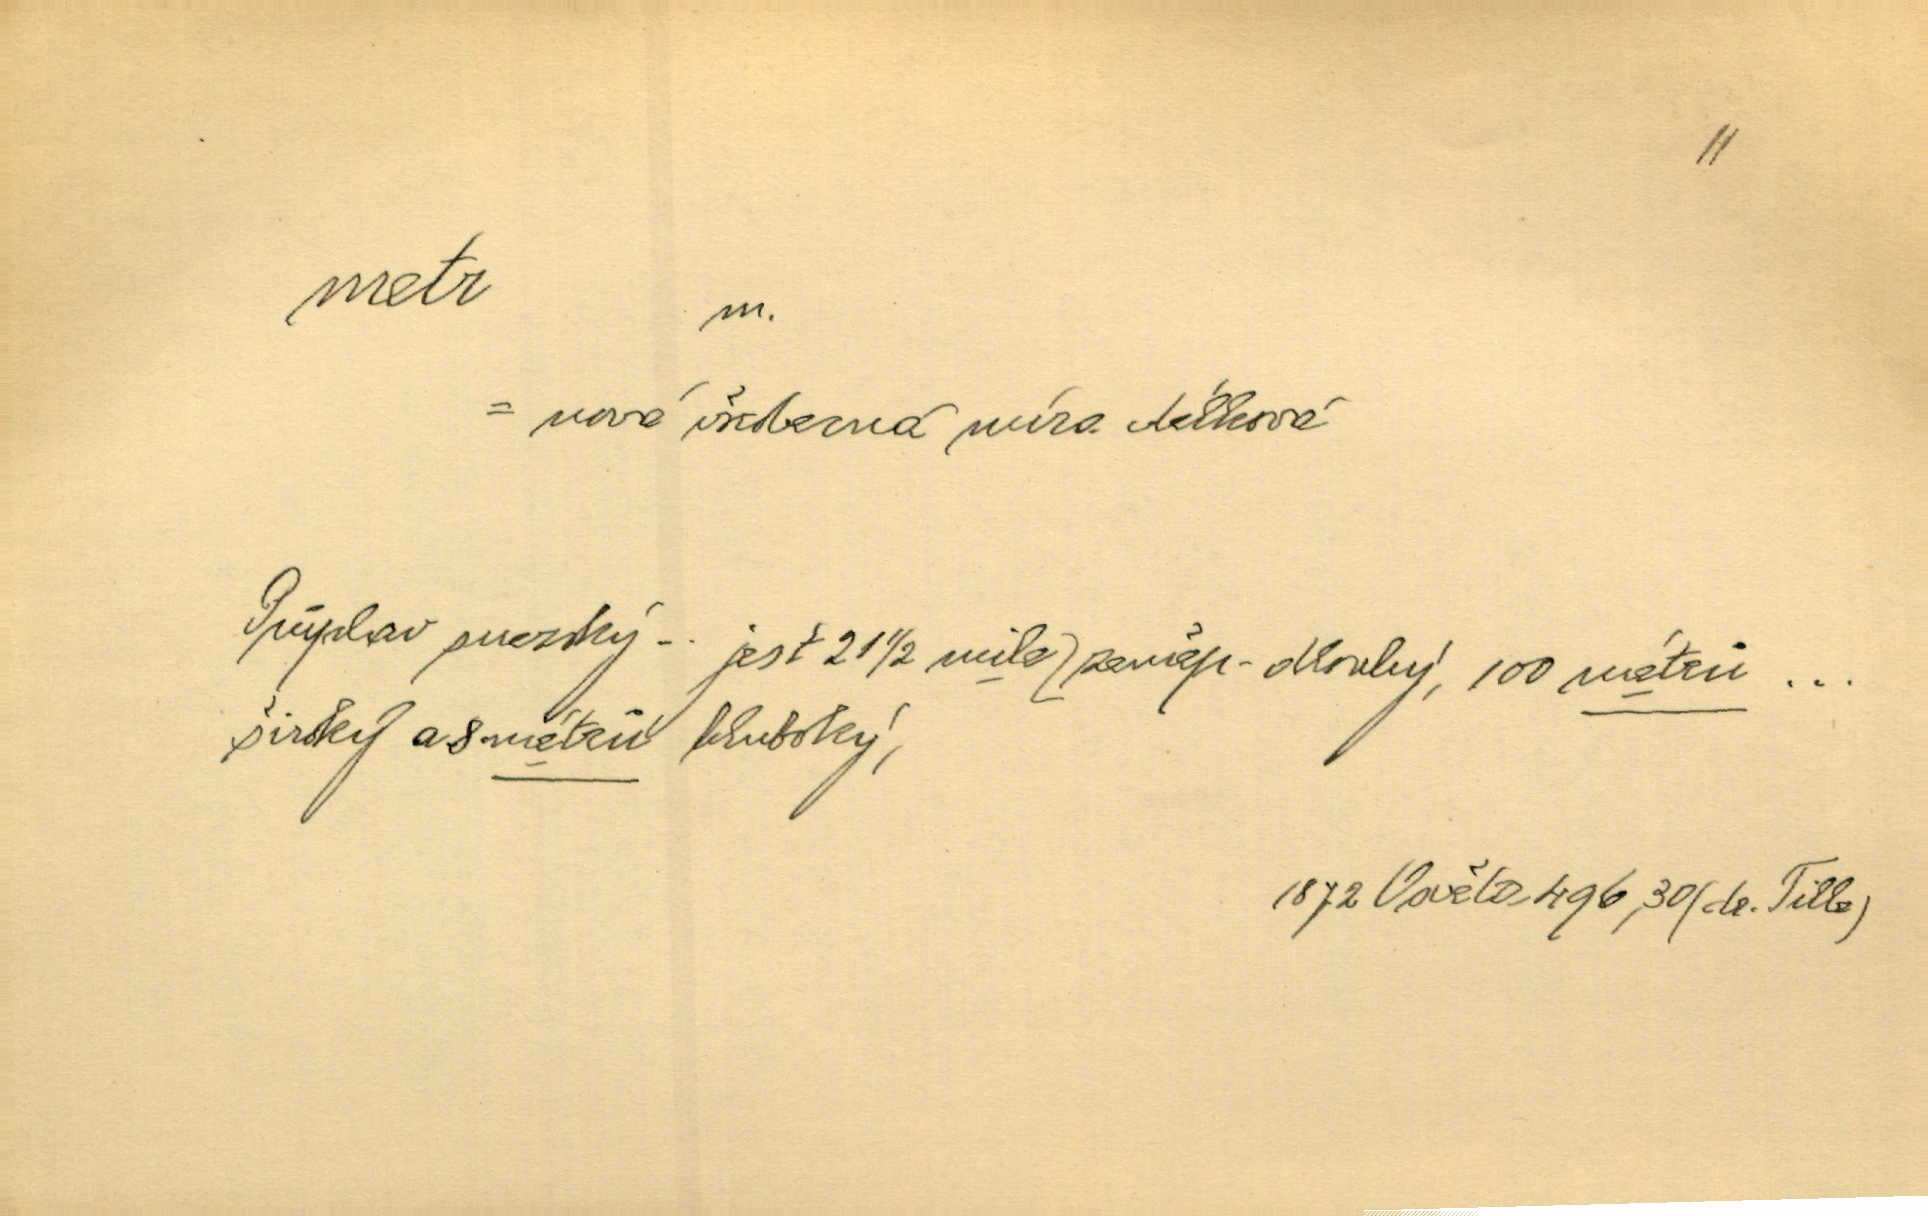 11
metr
m.
= nová všeobecná míra délková
Průplav suezský -.. jest 21 1/2 míle zeměp- dlouhý, 100 métrů ...
široký a 8 métrů hluboký,
1872 Osvěta 496,30 (dr. Tille)